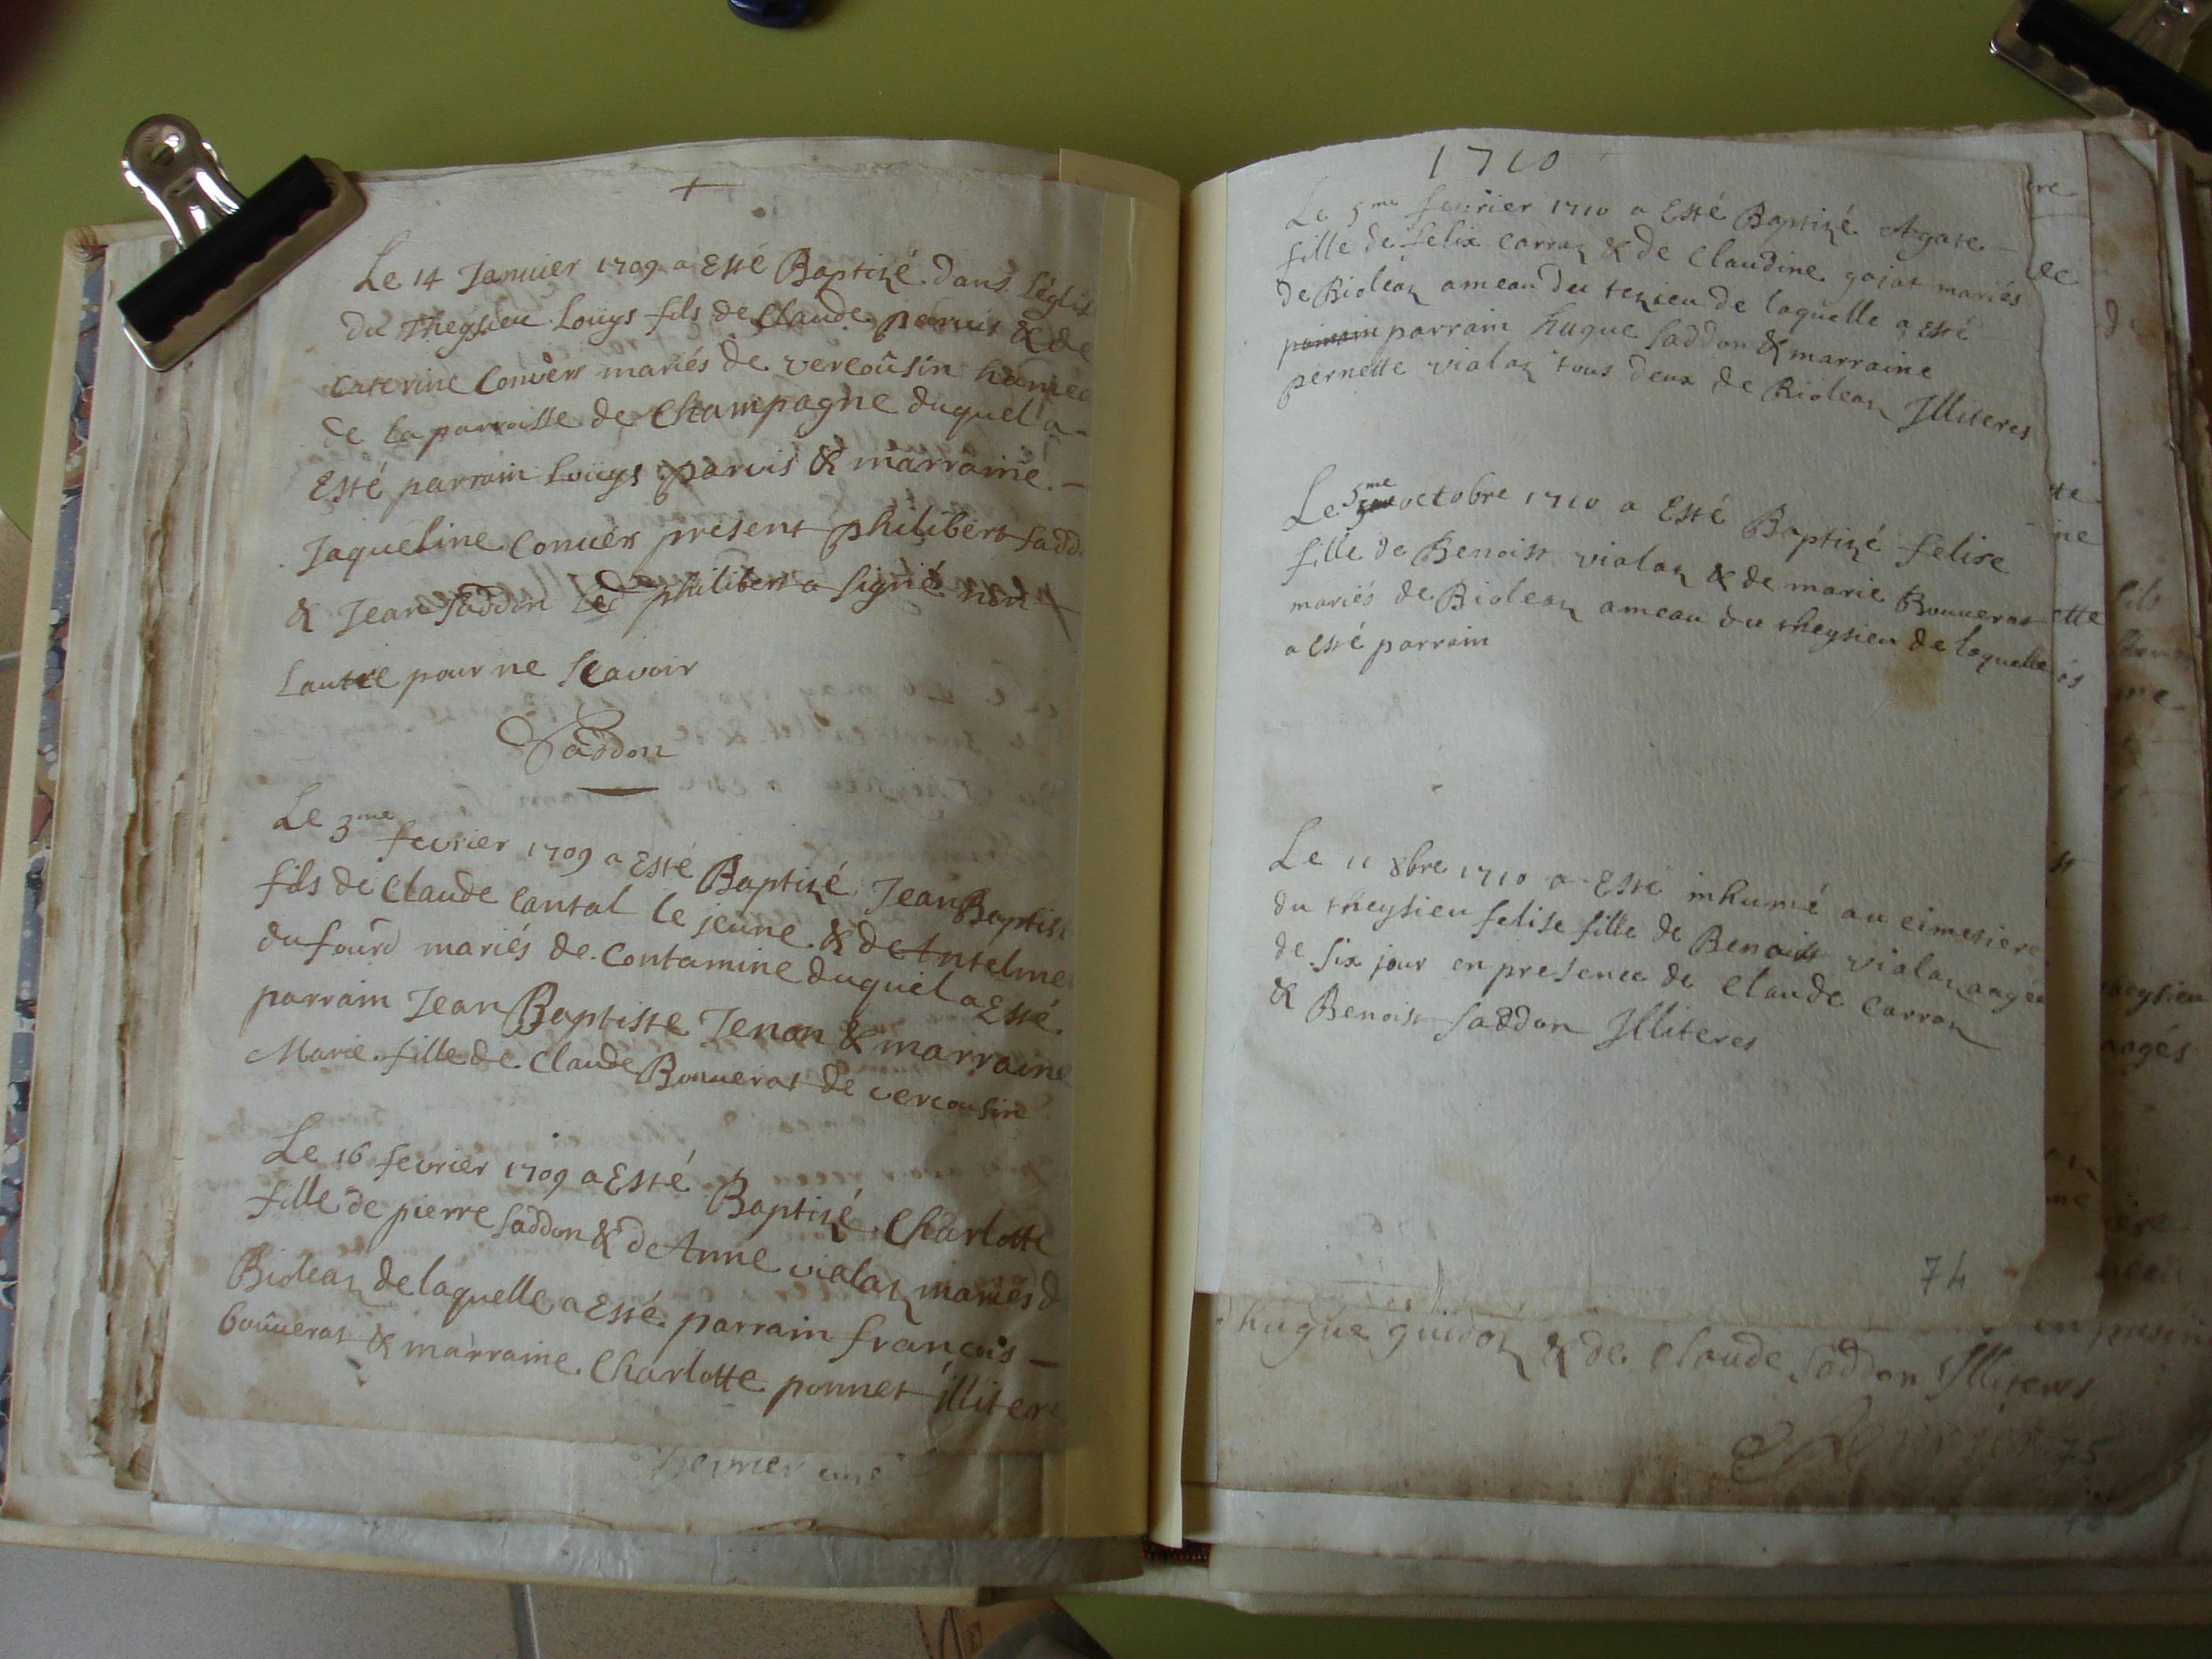 +
Le 14 Januier 1709 a Esté Baptizé dans léglis
du Theysieu Loüys fils de Claude paruis & de
Caterine Conuers mariés de vercoûsin hamea
de la parroisse de Champagne duquel a
Esté parrain Loüys paruis & marraine
Jaqueline Conuers present philibert sadd
& Jean saddon led philibert a signé non
lautre pour ne scavoir
Saddon
Le 3me feurier 1709 a Esté Baptizé Jean Baptist
fils de Claude Cantal le jeune & de Antelme
dufourd mariés de Contamine duquel a Esté
parrain Jean Baptiste Jenan & marraine
Marie fille de Claude Bouuerat de vercousin
Le 16 feurier 1709 a Esté Baptizé Charlotte
fille de pierre saddon & de Anne vialaz mariés d
Bioleaz de laquelle a Esté parrain francois
bouuerat & marraine Charlotte ponnet illitere
1710
Le 5me feurier 1710 a Esté Baptizé Agate
fille de felix Carraz & de Claudine gojat mariés
de Bioleaz ameau du tezieu de laquelle a Esté
parrain hugue saddon & marraine
pernette vialaz tous deux de Bioleaz Jlliteres
Le 5me octobre 1710 a Esté Baptizé felise
fille de Benoist vialaz & de marie Bouuerat
mariés de Bioleaz ameau du theysieu de laquelle
a Esté parrain
Le 11 8bre 1710 a Esté inhumé au cimetiere
du theysieu felise fille de Benoist vialaz aagée
de six jour en presence de Claude Carraz
& Benoist saddon Jlliteres
74
en presen
hugue guidoz & de Claude saddon Jlliteres
75